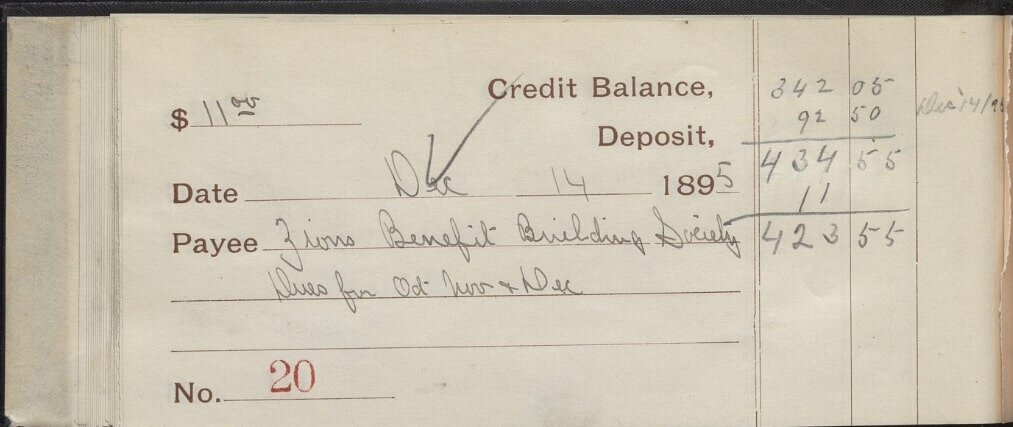 $ 11.00
Credit Balance, 342 05
Deposit, 92 50 Dec 14/95
434 55
Date Dec 14 1895
11
Payee Zions Benefit Building Society 423 55
Dues for Oct Nov + Dec
No. 20